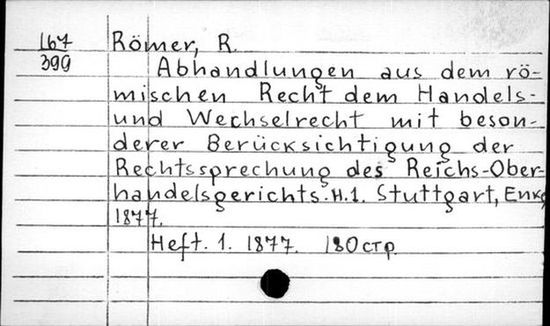 167 Römer, R.
399 Abhandlungen aus dem rö-
mischen Recht dem Handels-
und Wechselrecht mit beson-
derer Berücksichtigung der
Rechtssprechung des Reichs-Ober-
handelsgerichts. H.1. Stuttgart, Enke
1877.
Heft. 1. 1877. 180 стр.